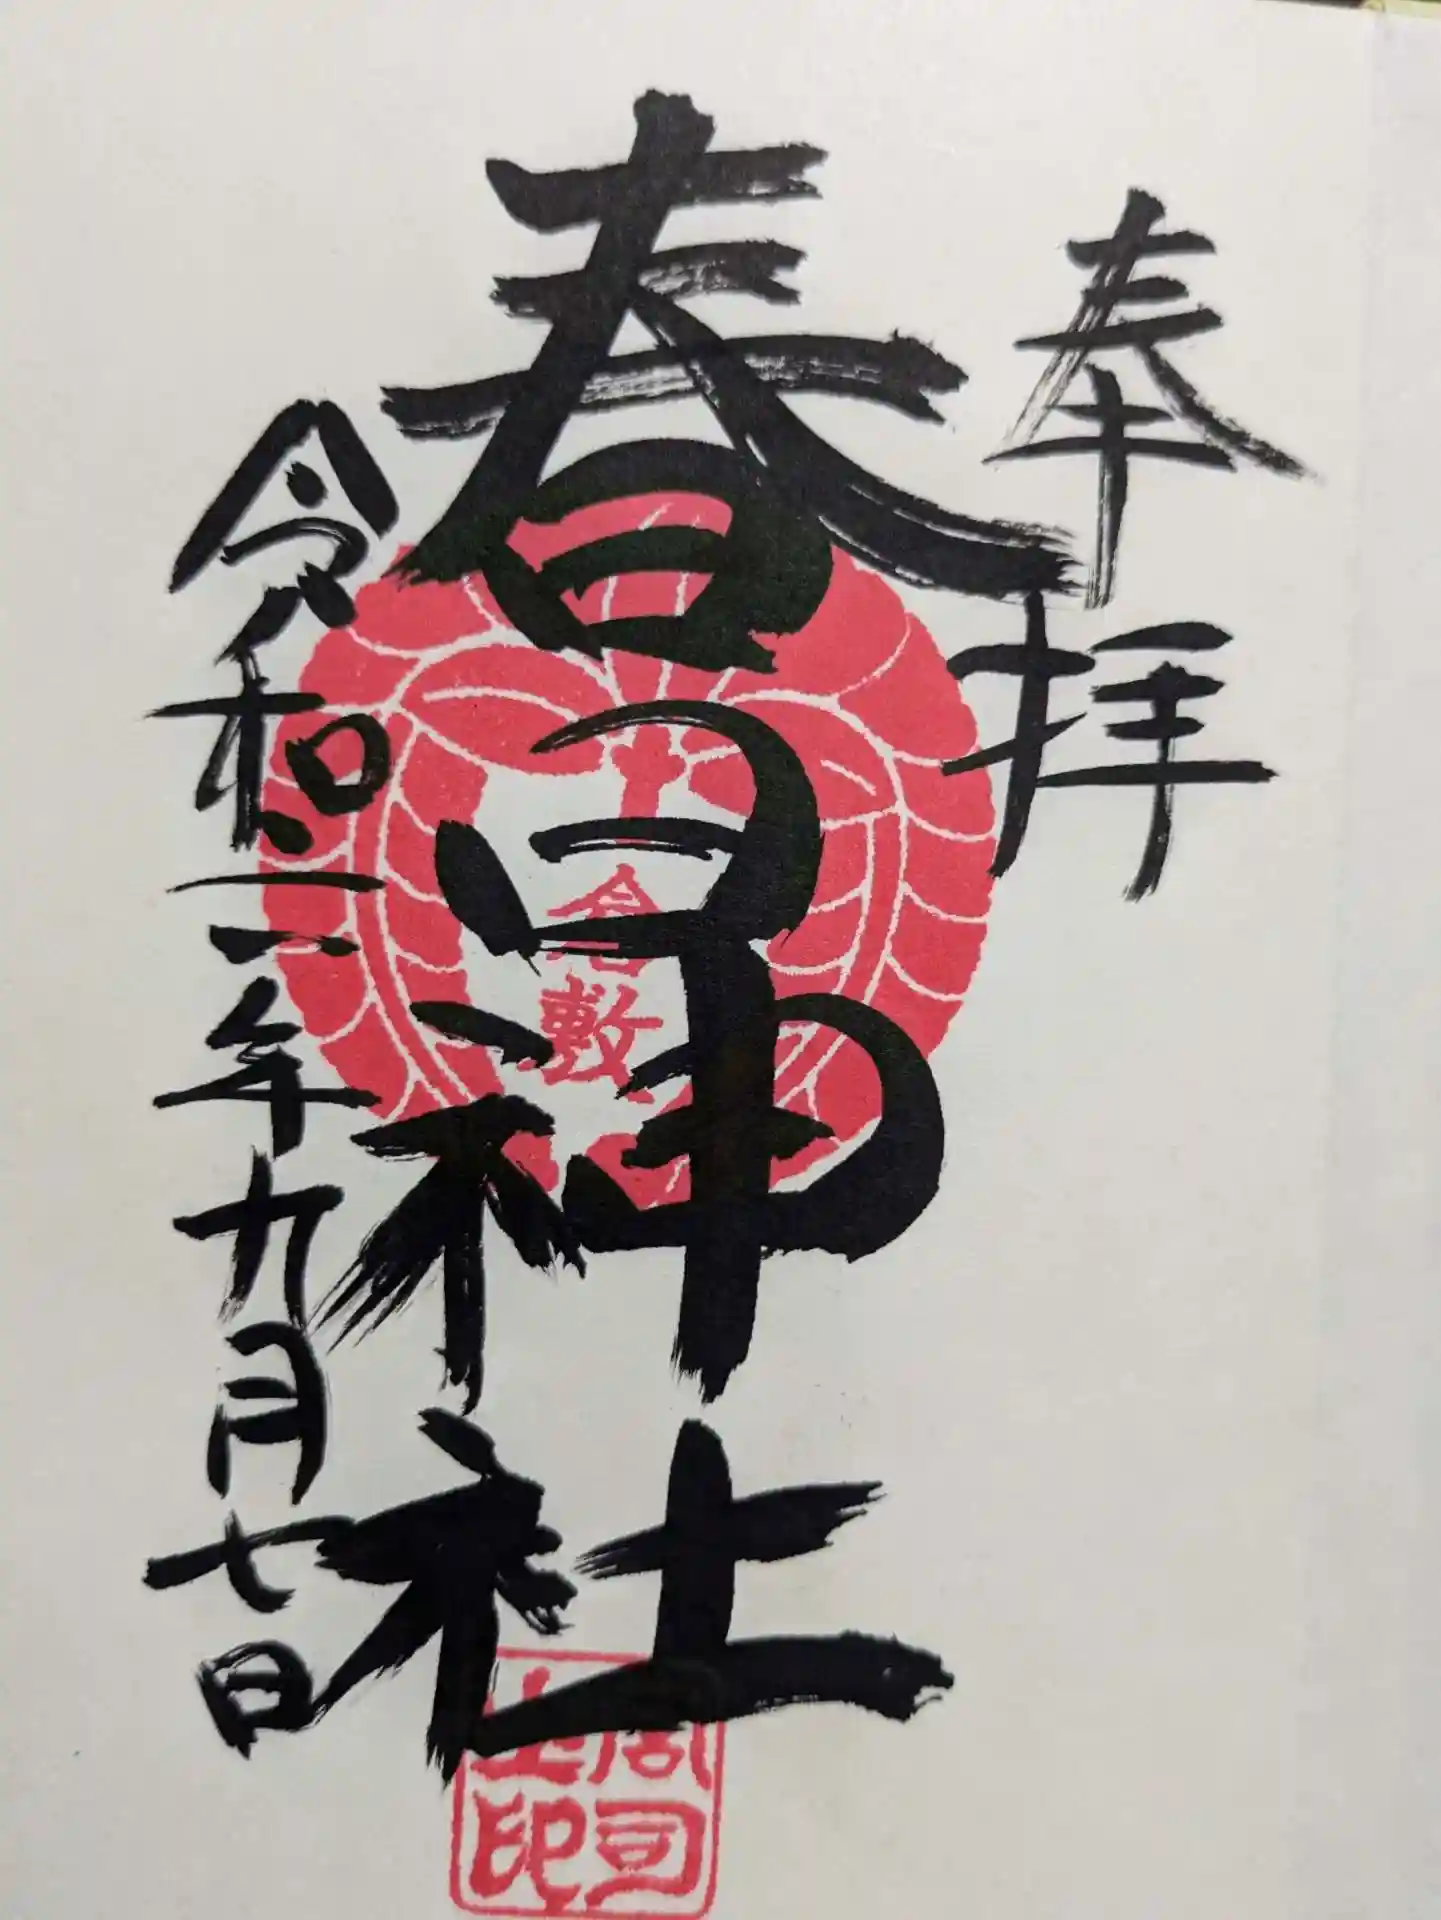 奉拝
春日神社
令和六年九月七日
倉敷
宮司
之印